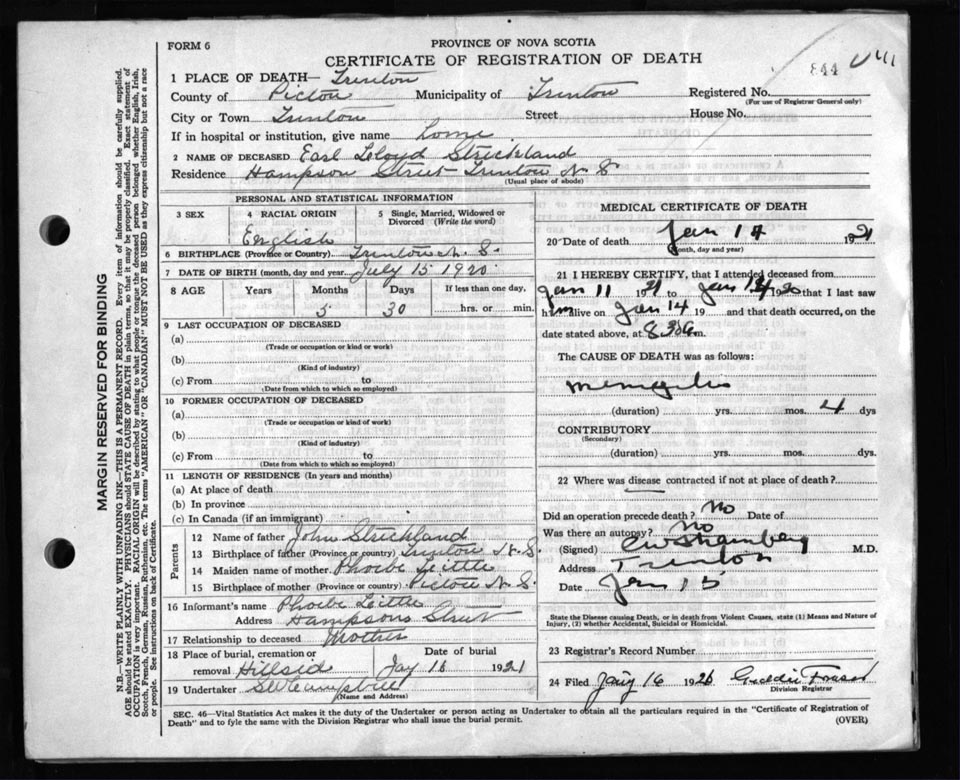 FORM 6
PROVINCE OF NOVA SCOTIA
CERTIFICATE OF REGISTRATION OF DEATH
844
1 PLACE OF DEATH— Trenton
County of Pictou Municipality of Trenton Registered No.
(For use of Registrar General only)
City or Town Trenton Street House No.
If in hospital or institution, give name home
2 NAME OF DECEASED Earl Lloyd Strickland
Residence Hampson Street Trenton N S
(Usual place of abode)
PERSONAL AND STATISTICAL INFORMATION
3 SEX 4 RACIAL ORIGIN 5 Single, Married, Widowed or Divorced (Write the word)
English
6 BIRTHPLACE (Province or Country) Trenton N. S.
7 DATE OF BIRTH (month, day and year) July 15 1920
8 AGE Years Months Days If less than one day,
5 30 hrs. or min.
9 LAST OCCUPATION OF DECEASED
(a)
(Trade or occupation or kind or work)
(b)
(Kind of industry)
(c) From to
(Date from which to which so employed)
10 FORMER OCCUPATION OF DECEASED
(a)
(Trade or occupation or kind or work)
(b)
(Kind of industry)
(c) From to
(Date from which to which so employed)
11 LENGTH OF RESIDENCE (In years and months)
(a) At place of death
(b) In province
(c) In Canada (if an immigrant)
Parents
12 Name of father John Strickland
13 Birthplace of father (Province or country) Trenton N. S.
14 Maiden name of mother Phoebe Little
15 Birthplace of mother (Province or country) Pictou N. S.
16 Informant's name Phoebe Little
Address Hampsons Street
17 Relationship to deceased Mother
18 Place of burial, cremation or Date of burial
removal Hillside Jay 16 1921
19 Undertaker
(Name and Address)
MEDICAL CERTIFICATE OF DEATH
20 Date of death Jan 14 1921
(month, day and year)
21 I HEREBY CERTIFY, that I attended deceased from
Jan 11 1921 to Jan 192 that I last saw
h im alive on Jan 14 19 and that death occurred, on the
date stated above, at 8 30 a m.
The CAUSE OF DEATH was as follows:
Meningitis
(duration) yrs. mos. 4 dys
CONTRIBUTORY
(Secondary)
(duration) yrs. mos. dys
22 Where was disease contracted if not at place of death?
Did an operation precede death? No Date of
Was there an autopsy? No
(Signed) M.D.
Address Trenton
Date Jan 15
State the Disease causing Death, or in death from Violent Causes, state (1) Means and Nature of
Injury, (2) whether Accidental, Suicidal or Homicidal.
23 Registrar's Record Number
24 Filed Jany 16 192 Fraser
Division Registrar
SEC. 46—Vital Statistics Act makes it the duty of the Undertaker or person acting as Undertaker to obtain all the particulars required in the "Certificate of Registration of
Death" and to fyle the same with the Division Registrar who shall issue the burial permit. (OVER)
MARGIN RESERVED FOR BINDING
N.B.—WRITE PLAINLY WITH UNFADING INK—THIS IS A PERMANENT RECORD. Every item of information should be carefully supplied.
AGE should be stated EXACTLY. PHYSICIANS should STATE CAUSE OF DEATH in plain terms, so that it may be properly classified. Exact statement of
OCCUPATION is very important. RACIAL ORIGIN will be described by stating to what people or tongue the deceased person belonged whether English, Irish,
Scotch, French, German, Russian, Ruthenian, etc. The terms "AMERICAN" or "CANADIAN" MUST NOT BE USED as they express citizenship but not a race
or people. See instructions on back of Certificate.